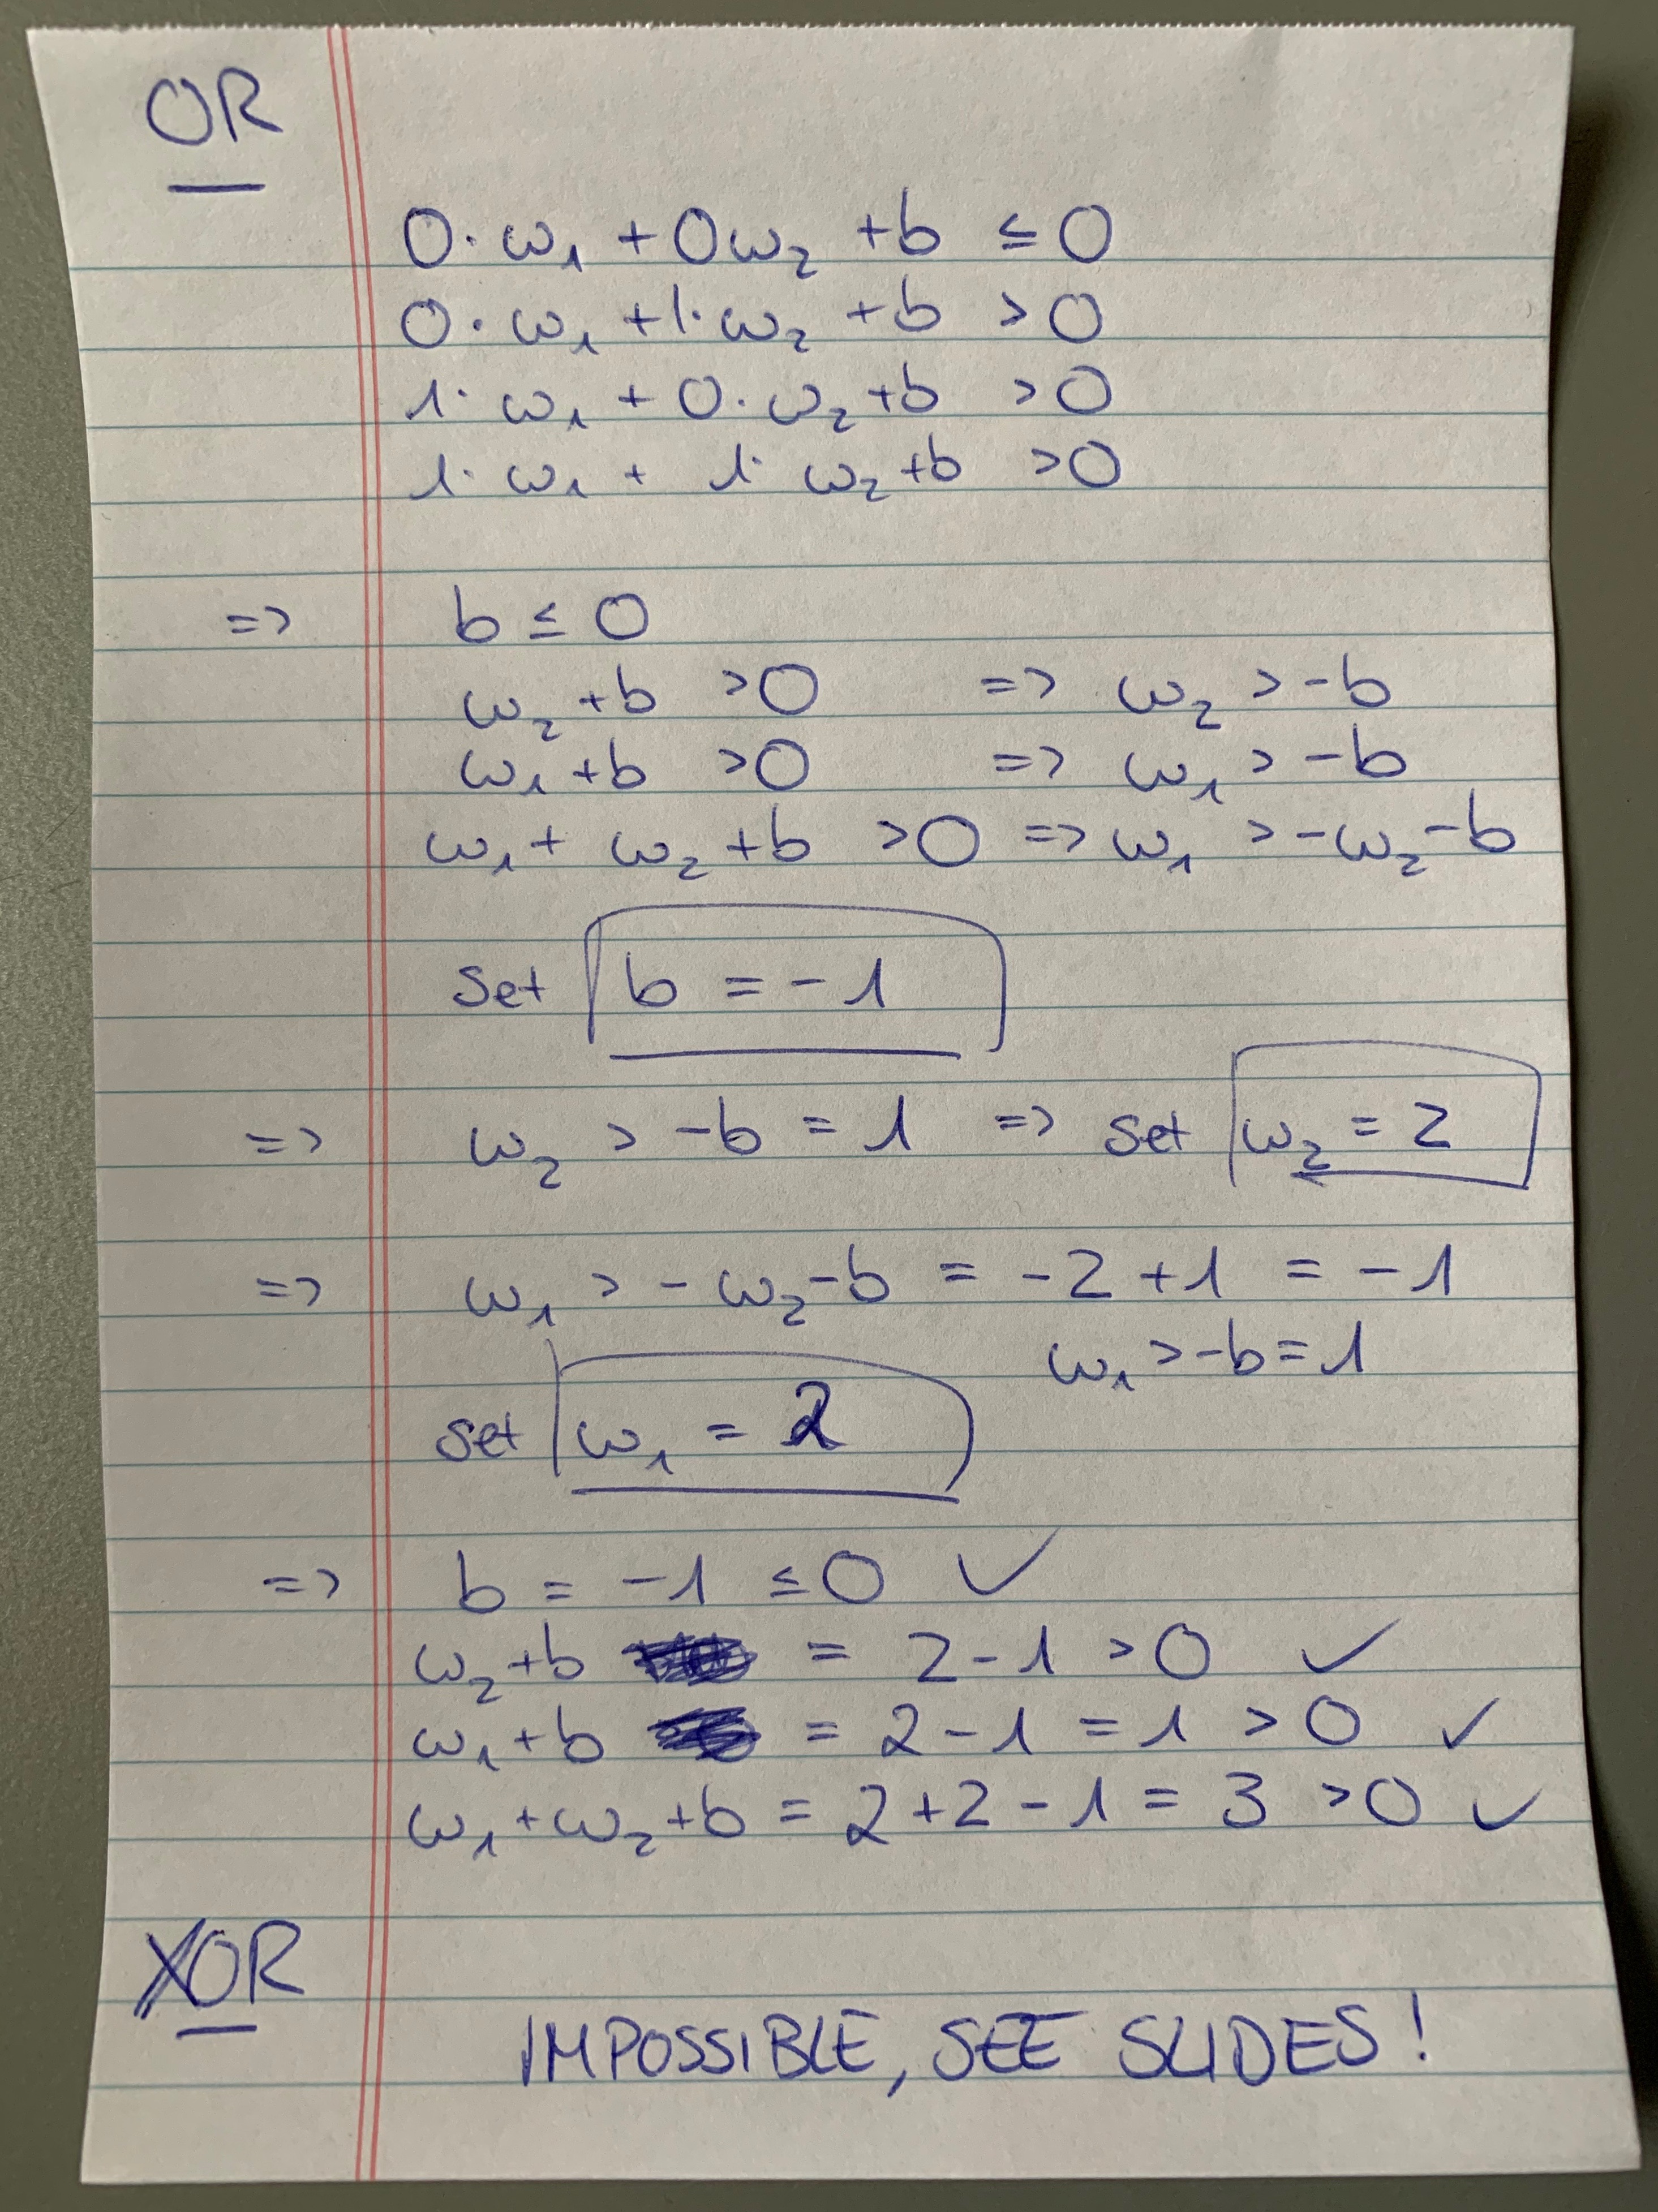 OR
0·ω₁ + 0ω₂ + b ≤ 0
0·ω₁ + 1·ω₂ + b > 0
1·ω₁ + 0·ω₂ + b > 0
1·ω₁ + 1·ω₂ + b > 0
=> b ≤ 0
ω₂ + b > 0 => ω₂ > -b
ω₁ + b > 0 => ω₁ > -b
ω₁ + ω₂ + b > 0 => ω₁ > -ω₂ - b
set b = -1
=> ω₂ > -b = 1 => set ω₂ = 2
=> ω₁ > -ω₂ - b = -2 + 1 = -1
ω₁ > -b = 1
set ω₁ = 2
=> b = -1 ≤ 0 ✓
ω₂ + b = 2 - 1 > 0 ✓
ω₁ + b = 2 - 1 = 1 > 0 ✓
ω₁ + ω₂ + b = 2 + 2 - 1 = 3 > 0 ✓
XOR
IMPOSSIBLE, SEE SLIDES!